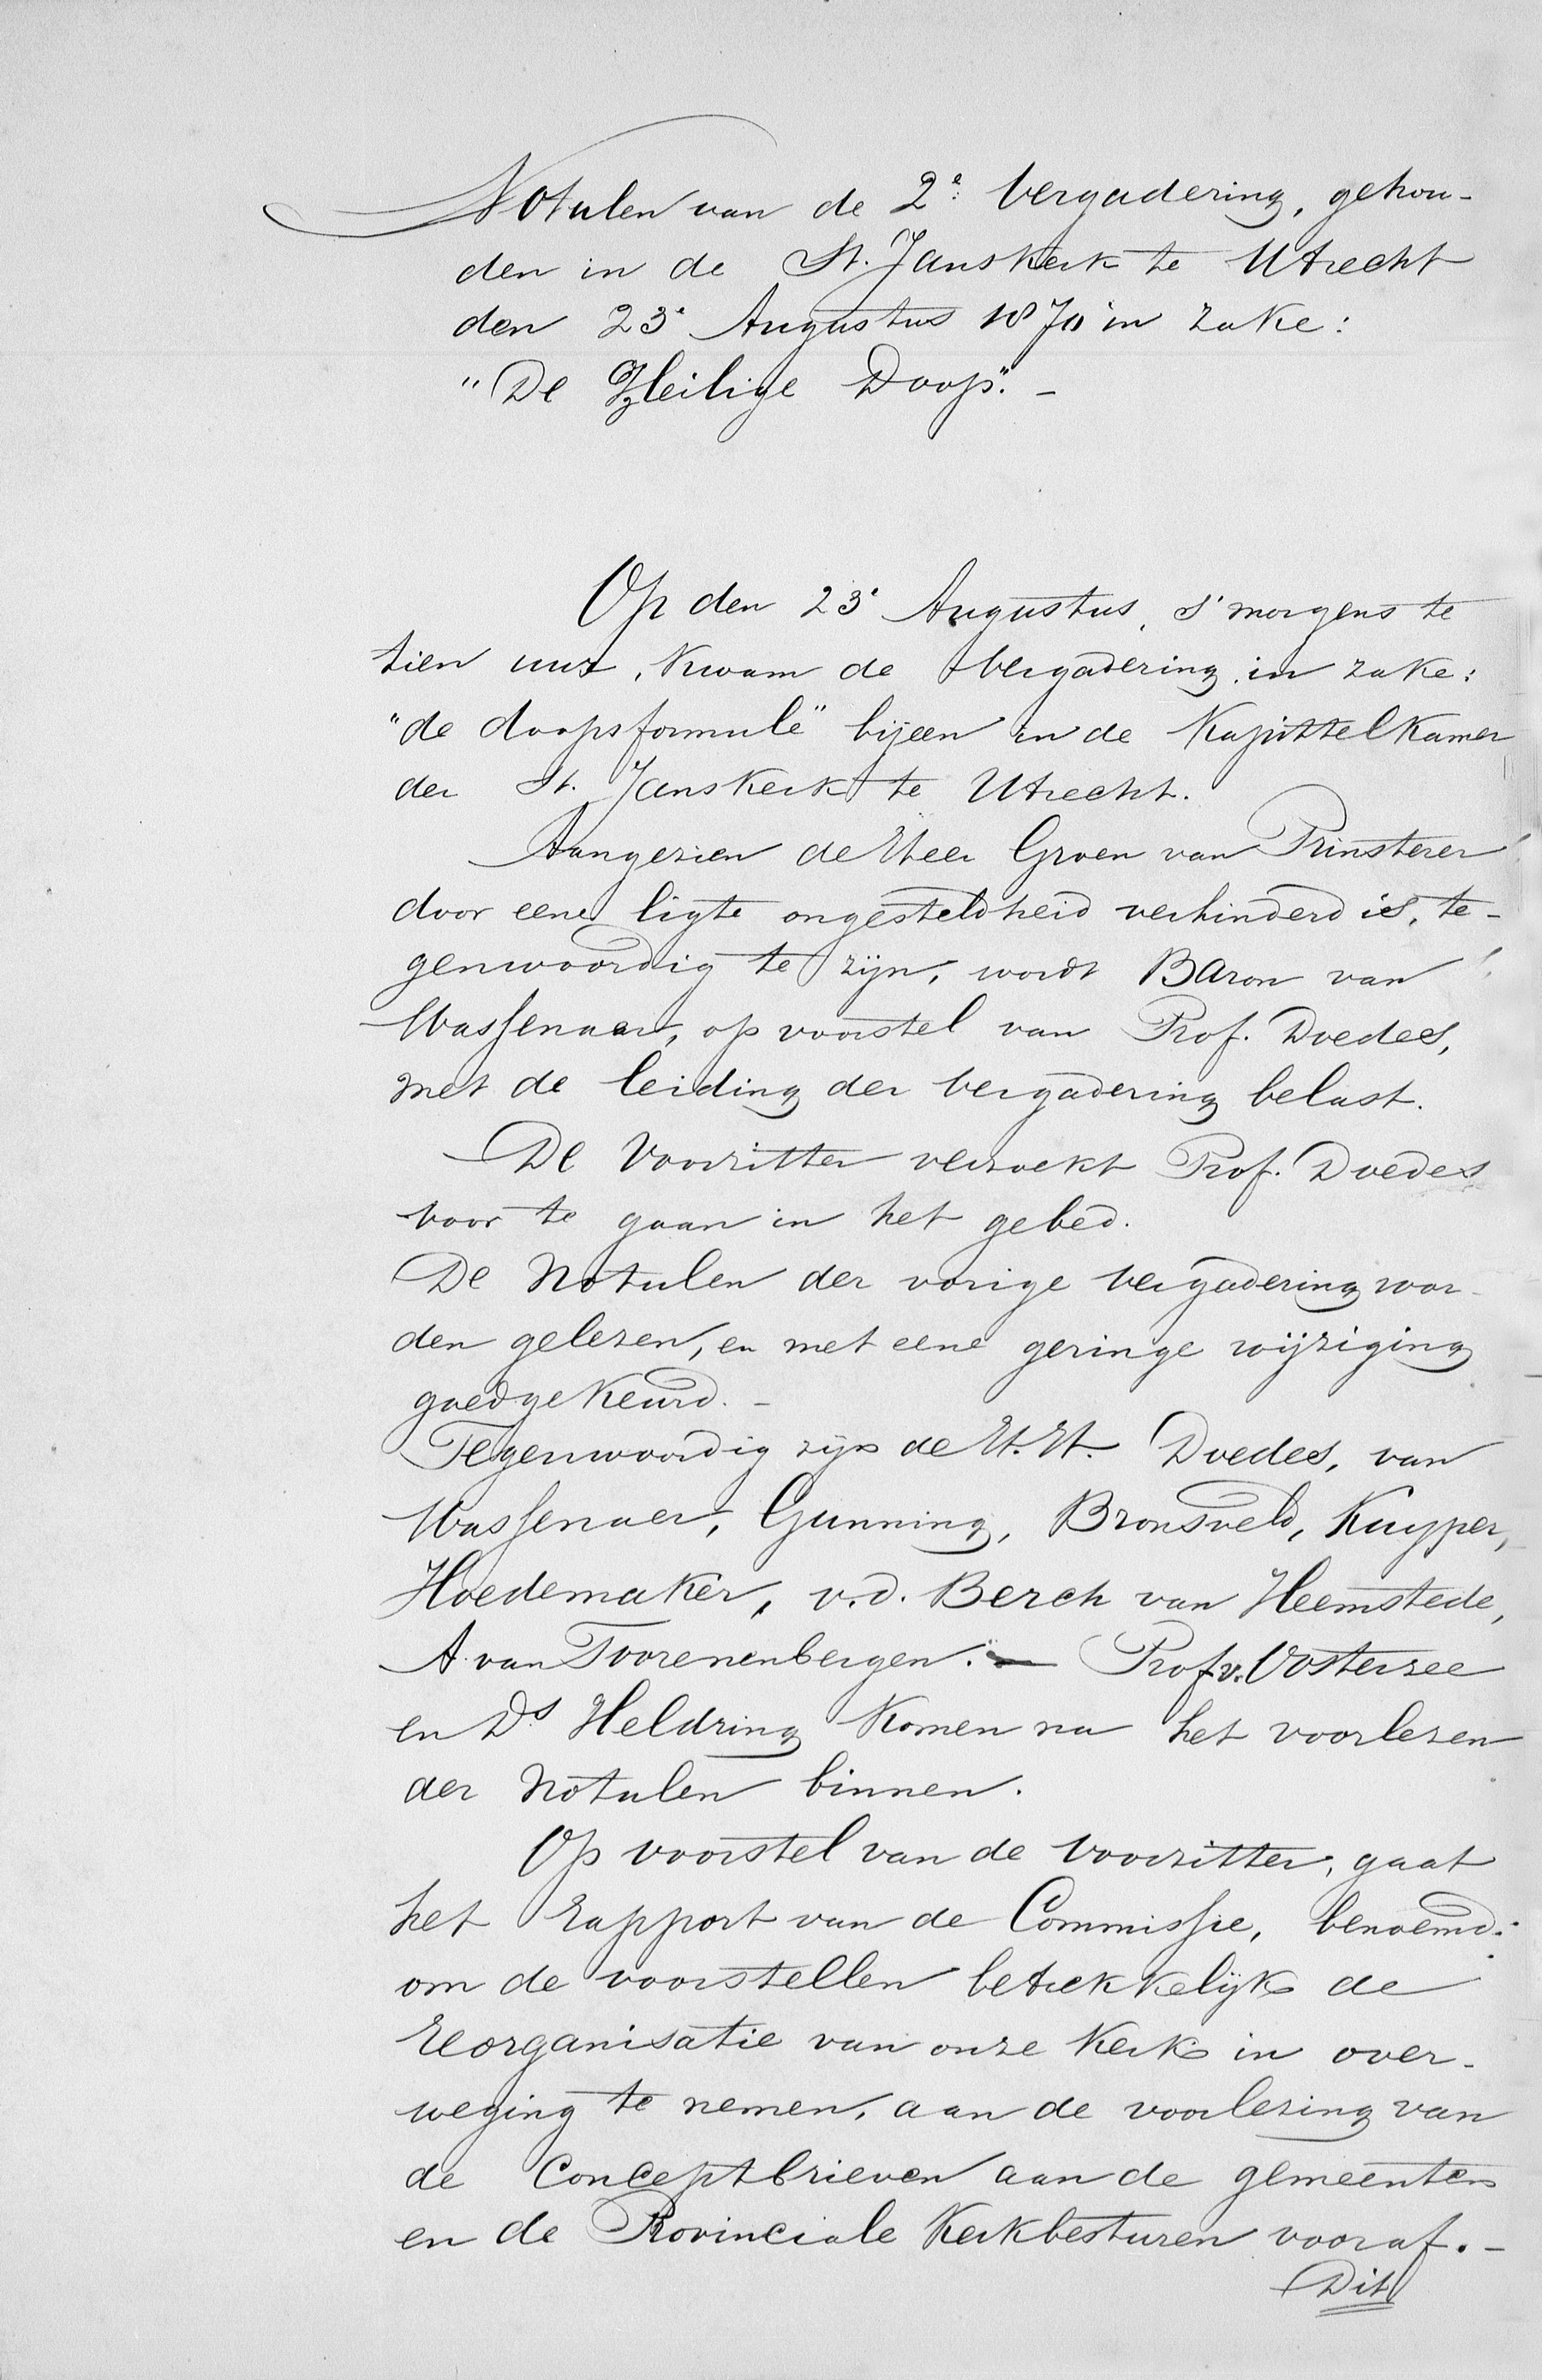 Notulen van de 2e Vergadering, gehou-
den in de St. Janskerk te Utrecht
den 23e Augustus 1870 in zake:
"De Heilige Doop". -
Op den 23e Augustus, s'morgens te
tien uur, kwam de Vergadering in zake:
"de doopsformule" bijeen in de Kapittelkamer
der St. Janskerk te Utrecht.
Aangezien de Heer Groen van Prinsterer
door eene ligte ongesteldheid verhinderd is, te-
genwoordig te zijn, wordt Baron van
Wassenaer, op voorstel van Prof. Doedes,
met de leiding der Vergadering belast.
De Voorzitter verzoekt Prof. Doedes
voor te gaan in het gebed.
De Notulen der vorige Vergadering wor-
den gelezen, en met eene geringe wijziging
goedgekeurd. -
Tegenwoordig zijn de H.H. Doedes, van
Wassenaer, Gunning, Bronsveld, Kuyper,
Hoedemaker, v.d. Berch van Heemstede,
A. van Toorenenbergen. — Prof. v. Oosterzee
en Ds Heldring komen na het voorlezen
der Notulen binnen.
Op voorstel van de Voorzitter, gaat
het Rapport van de Commissie, benoemd:
om de voorstellen betrekkelijk de
Reorganisatie van onze Kerk in over-
weging te nemen, aan de voorlezing van
de Conceptbrieven aan de gemeenten
en de Provinciale Kerkbesturen vooraf. -
Dit